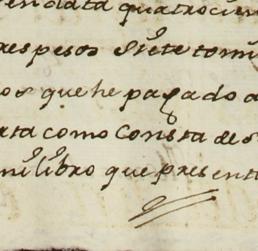 en data quatrocien
res pesos siete tomi
os que he pagado a
ata como Consta de s
mi libro que present